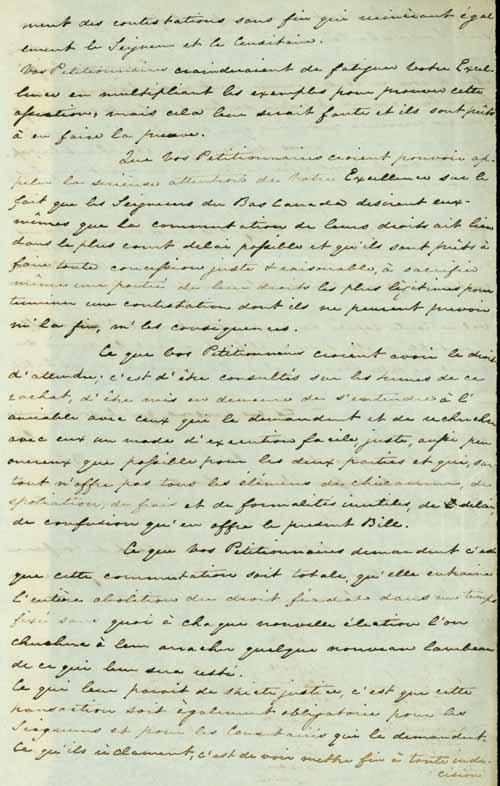 ment des contestations sans fin qui ruineraient égal
ement le Seigneur et le Censitaire.
Vos Petitionnaires craindraient de fatiguer Votre Excel
lence en multipliant les exemples pour prouver cette
assertion, mais cela leur serait facile et ils sont prêts
à en faire la preuve.
Que Vos Petitionnaires croient pouvoir ap
peler la serieuse attention de Votre Excellence sur le
fait que les Seigneurs du Bas Canada desirent eux-
mêmes que la commutation de leurs droits ait lieu
dans le plus court delai possible et qu'ils sont prêts à
faire toute concession juste & raisonable, à sacrifier
même une partie de leur droits les plus légitimes pour
terminer une contestation dont ils ne peuvent prevoir
ni la fin, ni les conséquences.
Ce que Vos Petitionnaires croient avoir le droit
d'attendre, c'est d'être consultés sur les termes de ce
rachat, d'être mis en demeure de s'entendre à l'
amiable avec ceux que le demandent et de rechercher
avec eux un mode d'execution facile, juste, aussi peu
onereux que possible pour les deux parties et qui, sur
tout n'offre pas tous les élémens de chicannes, de
spoliation, de frais et de formalités inutiles, de delai,
de confusion qu'en offre le present Bill.
Ce que Vos Petitionnaires demandent c'est
que cette commutation soit totale, qu'elle entraine
l'entière abolition du droit féodal dans un temps
fixé sans quoi à chaque nouvelle élection l'on
cherchera à leur arracher quelque nouveau lambeau
de ce qui leur sera resté.
Ce qui leur parait de stricte justice, c'est que cette
transaction soit également obligatoire pour les
Seigneurs et pour les Censitaires qui le demandent.
Ce qu'ils réclament, c'est de voir mettre fin à toute inde-
cision